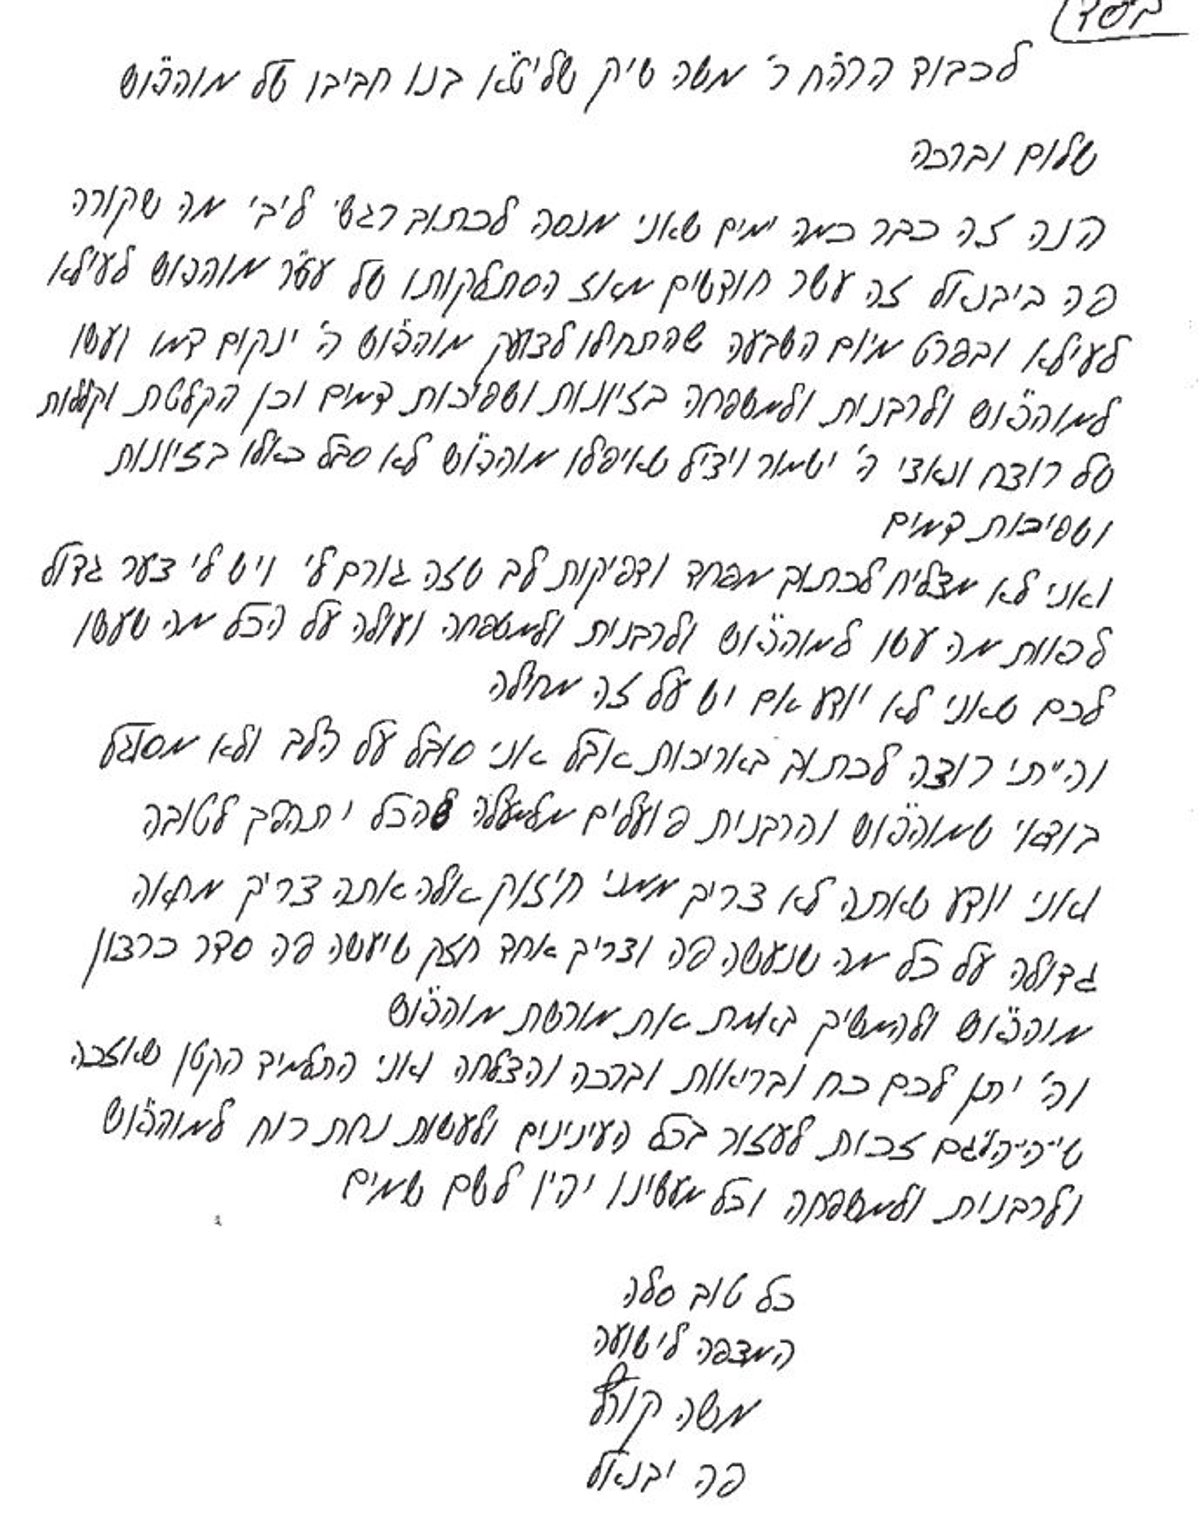 בס"ד
לכבוד הרה"ח ר' משה שיק שליט"א בנו חביבו של מוהרא"ש
שלום וברכה
הנה זה כבר כמה ימים שאני מנסה לכתוב רגשי ליבי מה שקורה
פה ביבנאל זה עשר חודשים מאז הסתלקותו של עט"ר מוהרא"ש לעילא
לעילא ובפרט מיום השבעה שהתחילו לצועק מוהרא"ש ה' ינקום דמו ועשו
למוהרא"ש ולרבנית ולמשפחה בזיונות ושפיכות דמים וכן הקלטת וקללות
של רוצח ונאצי ה' ישמור ויציל שאיפלו מוהרא"ש לא סבל כאלו בזיונות
ושפיכות דמים
ואני לא מצליח לכתוב מפחד ודפיקות לב שזה גורם לי ויש לי צער גדול
לפוות מה עשו למוהרא"ש ולרבנית ולמשפחה ועולה על הכל מה שעשו
לכם שאני לא יודע אם יש על זה מחילה
והייתי רוצה לכתוב באריכות אבל אני סובל על הלב ולא מסוגל
בודאי שמוהרא"ש והרבנית פועלים מלמעלה שהכל יתהפך לטובה
ואני יודע שאתה לא צריך ממני חיזוק אלה אתה צריך מחאה
גדולה על כל מה שנעשה פה וצריך אחד חזק שיעשה פה סדר כרצון
מוהרא"ש ולהמשיך באמת את מורשת מוהרא"ש
וה' יתן לכם כח ובריאות וברכה והצלחה ואני התלמיד הקטן שאזכה
שיהיה לי גם זכות לעזור בכל העינינים ולעשות נחת רוח למוהרא"ש
ולרבנית ולמשפחה וכל מעשינו יהיו לשם שמים
כל טוב סלה
המצפה לישועה
משה קורל
פה יבנאל